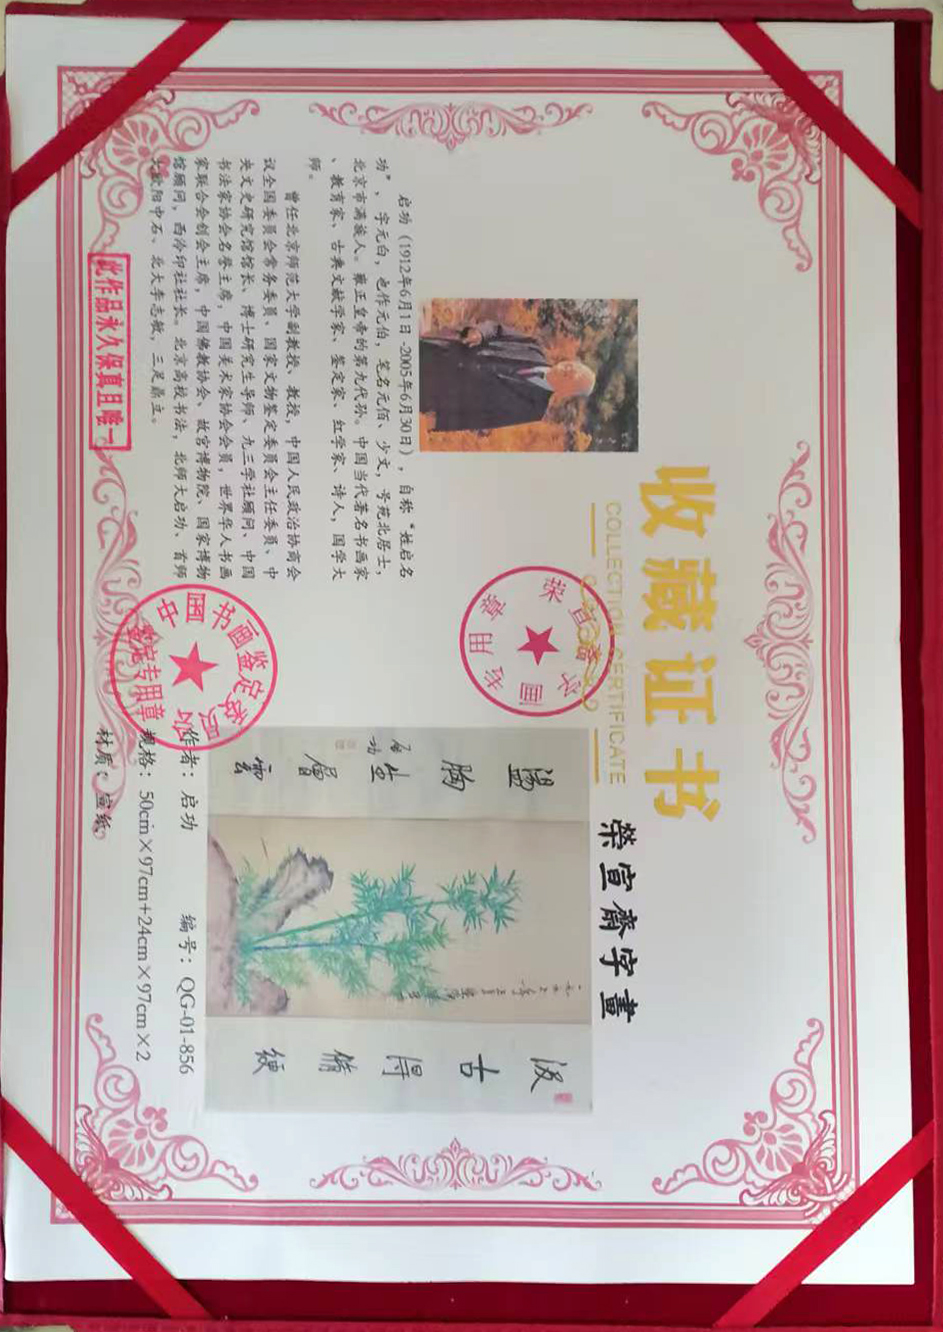 收藏证书
COLLECTION CERTIFICATE
榮宣齋字畫
启功（1912年6月1日-2005年6月30日），自称“姓启名
功”，字元白，也作元伯，笔名元佰、少文，号苑北居士，
北京市满族人。雍正皇帝的第九代孙。中国当代著名书画家
、教育家、古典文献学家、鉴定家、红学家、诗人，国学大
师。
曾任北京师范大学副教授、教授，中国人民政治协商会
议全国委员会常务委员、国家文物鉴定委员会主任委员、中
央文史研究馆馆长、博士研究生导师、九三学社顾问、中国
书法家协会名誉主席，中国美术家协会会员，世界华人书画
家联合会创会主席，中国佛教协会、故宫博物院、国家博物
馆顾问，西泠印社社长。北京高校书法，北师大启功、首师
大欧阳中石、北大李志敏，三足鼎立。
此作品永久保真且唯一
荣宣斋字画
专用章
中国书画鉴定委员会
鉴定专用章
汲古得脩綆
盪胸生層雲
启功
作者：启功 编号：QG-01-856
规格：50cm×97cm+24cm×97cm×2
材质：宣纸